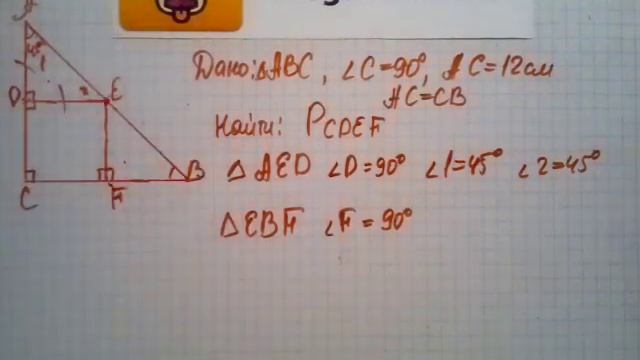 A
45°
1
D
2
E
C
F
B
Дано: △ABC, ∠C=90°, AC=12см
AC=CB
Найти: PCDEF
△ AED ∠D=90° ∠1=45° ∠2=45°
△EBF ∠F=90°